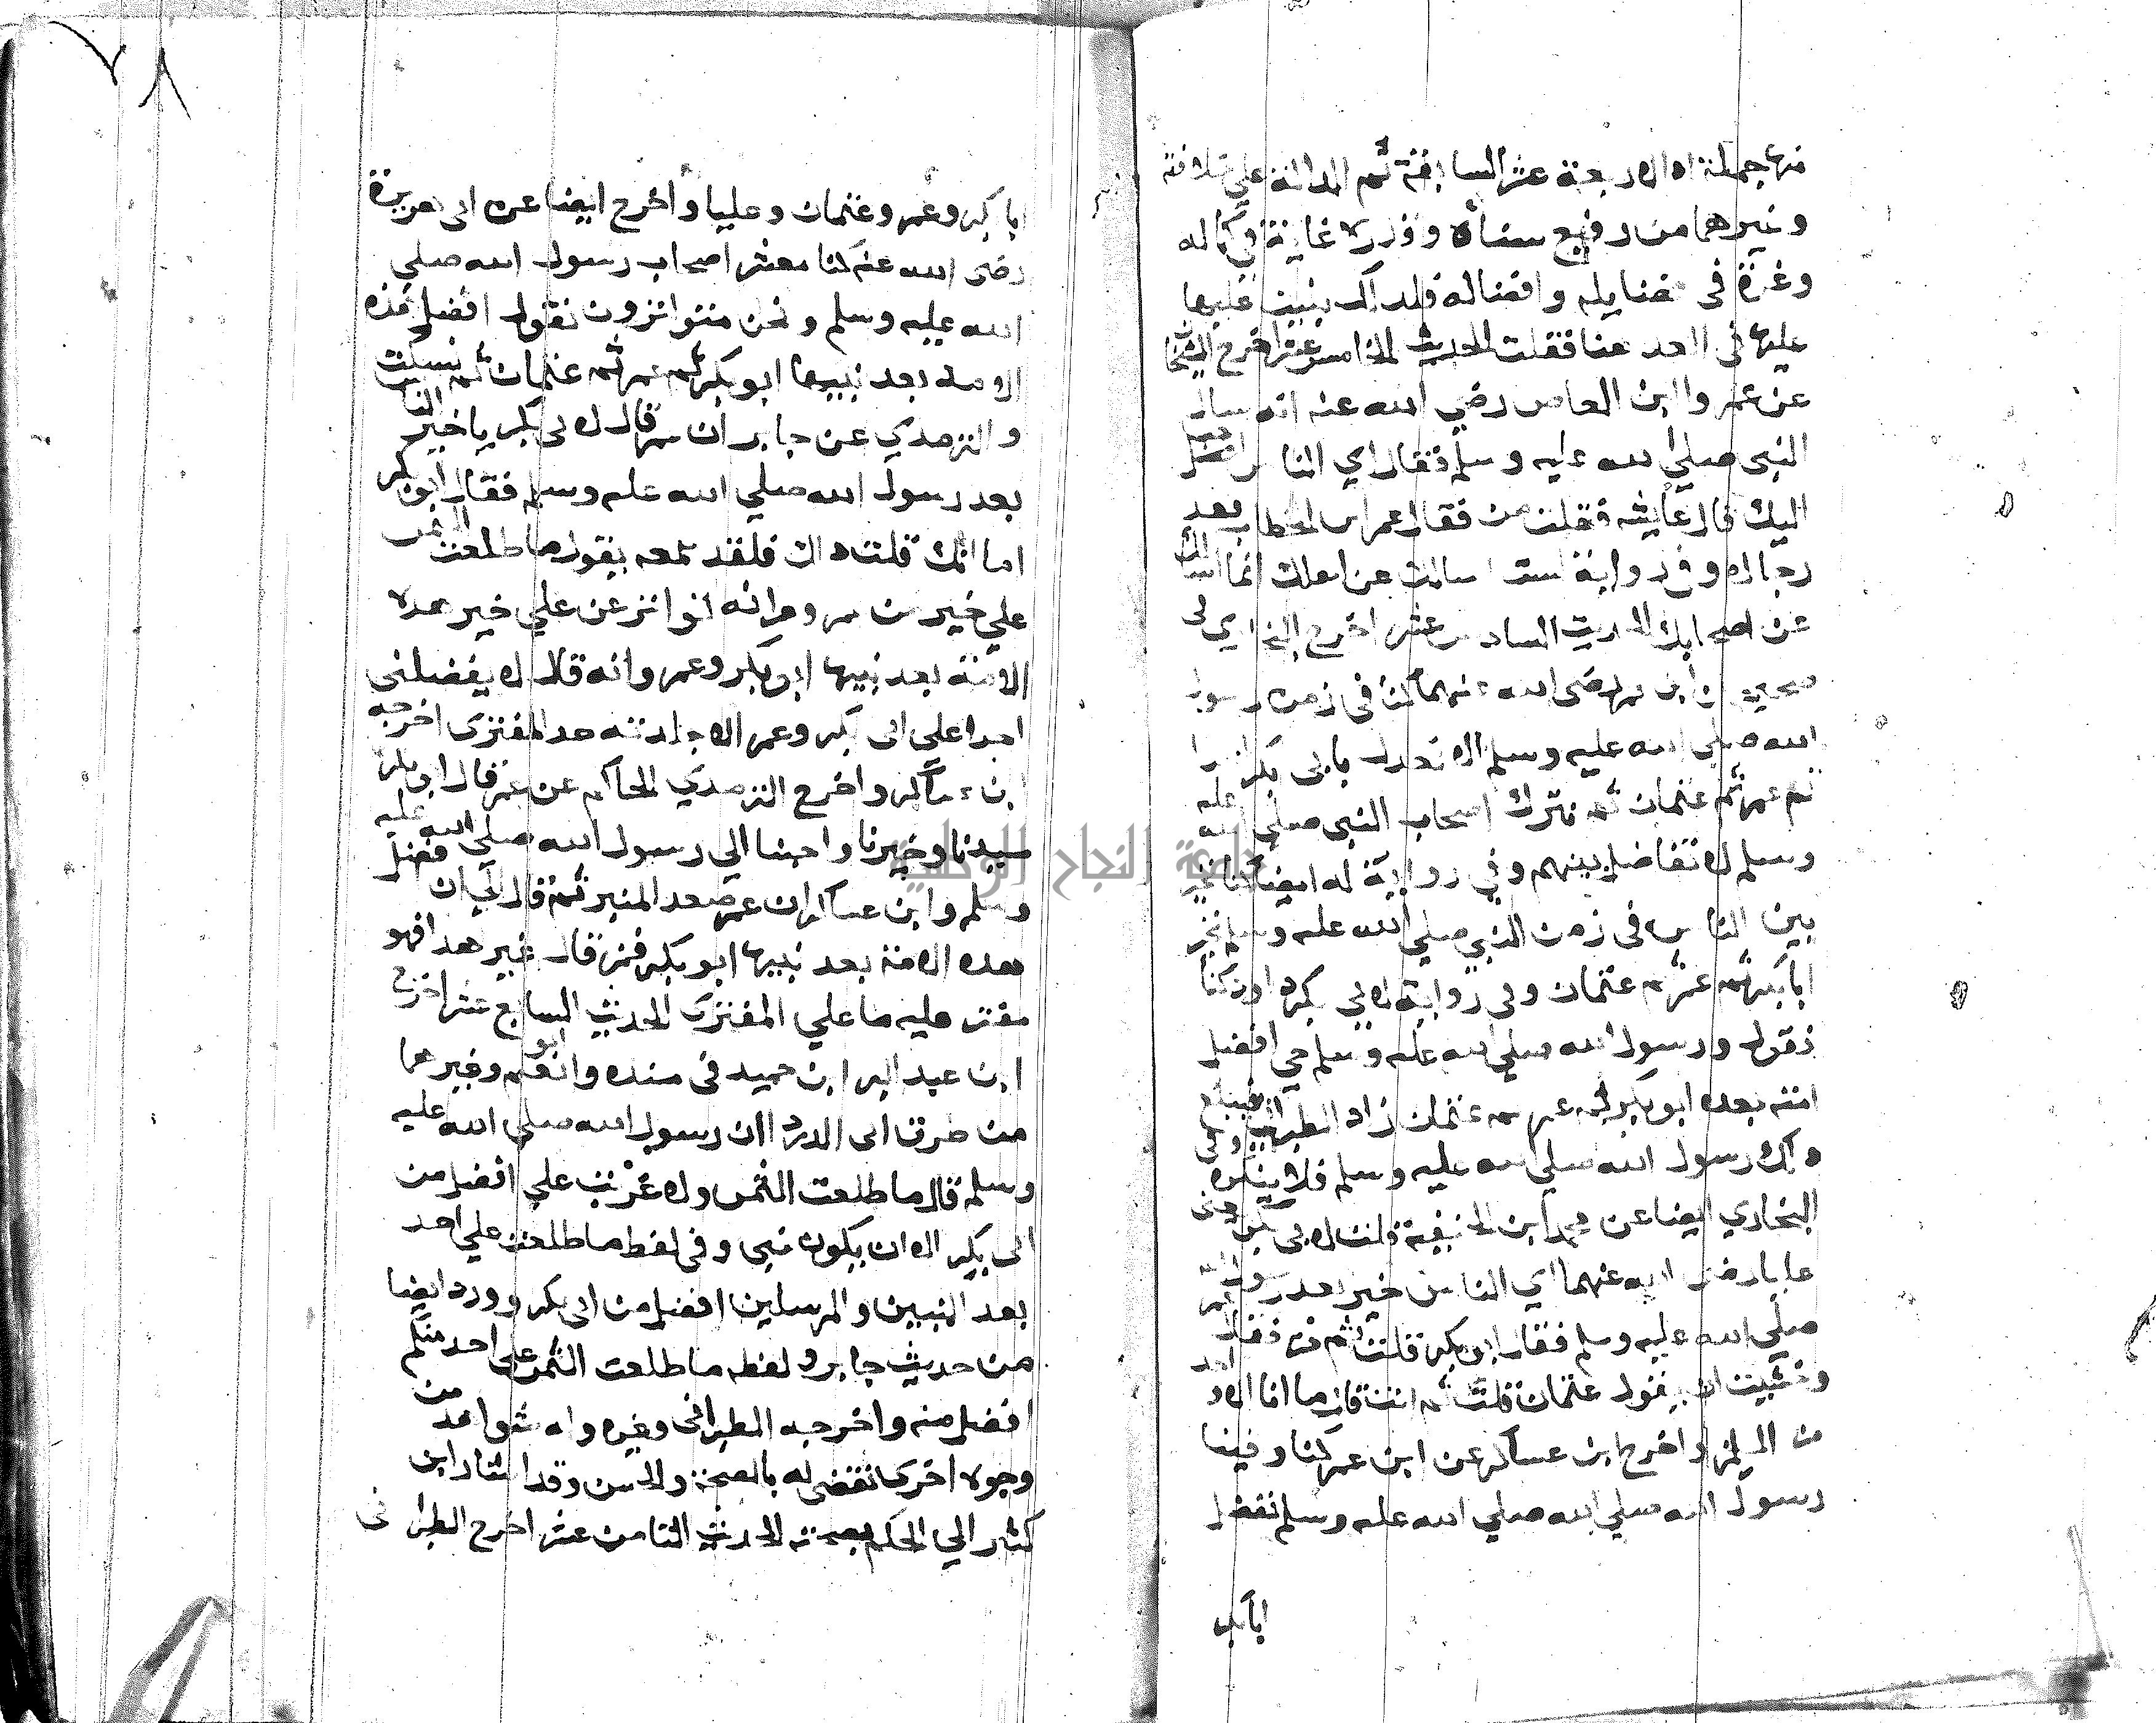 منها جملة اد الاربعة عشر السابقة ثم الدالة علي خلافته
وغيرهما من رفيع سناه وقدره غاية في كماله
وغرة في فضايله وافضاله فلذلك بنيت عليها
عليها في العد هنا فقلت الحديث الخامس عشر اخرج الشيخان
عن عمروا ابن العاص رضي الله عنه انه سال
النبي صلي الله عليه وسلم فقال اي الناس
اليك قال عايشه فقلت من فقال عمر ابن الخطاب بعد
رجالا وفي رواية لست اسالك عن اهلك انما اسالك
عن اصحابك الحديث السادس عشر اخرج البخاري في
صحيحه عن ابن عمر رضي الله عنهما كنا في زمن رسول
الله صلي الله عليه وسلم لا نعدل بابي بكر احدا
ثم عمر ثم عثمان ثم نترك اصحاب النبي صلي الله عليه
وسلم لا نفاضل بينهم وفي رواية له ايضا كنا نخير
بين الناس في زمن النبي صلي الله عليه وسلم نخير
ابا بكر ثم عمر ثم عثمان وفي رواية لابي داود كنا
نقول ورسول الله صلي الله عليه وسلم حي افضل
امته بعده ابو بكر ثم عمر ثم عثمان زاد الطبراني فيبلغ
ذلك رسول الله صلي الله عليه وسلم فلا ينكره وفي
البخاري ايضا عن محمد ابن الحنفية قلت لابي يعني
عليا رضي الله عنهما اي الناس خير بعد رسول الله
صلي الله عليه وسلم فقال ابو بكر قلت ثم من فقال عمر
وخشيت ان يقول عثمان قلت ثم انت قال ما انا الا احد
من المسلمين واخرج ابن عساكر عن ابن عمر كنا وفينا
رسول الله صلي الله صلي الله عليه وسلم نفضل
ابا بكر
٧٨
ابا بكر وعمر وعثمان وعليا واخرج ايضا عن ابي هريرة
رضي الله عنه كنا معشر اصحاب رسول الله صلي
الله عليه وسلم ونحن متواترون نقول افضل هذه
الامة بعد نبيها ابو بكر ثم عمر ثم عثمان ثم نسكت
والترمذي عن جابر ان عمر قال لابي بكر يا خير الناس
بعد رسول الله صلي الله عليه وسلم فقال ابو بكر
اما انك قلت ذاك فلقد سمعته يقول ما طلعت الشمس
علي خير من عمر ومرانه تواتر عن علي خير هذه
الامة بعد نبيها ابو بكر وعمر وانه قال لا يفضلني
احدا علي ابي بكر وعمر الا جلدته حد المفتري اخرجه
ابن عساكر واخرج الترمذي الحاكم عن عمر قال ابو بكر
سيدنا وخيرنا واحبنا الي رسول الله صلي الله عليه
وسلم وابن عساكر ان عمر صعد المنبر ثم قال الا ان افضل
هذه الامة بعد نبيها ابو بكر فمن قال غير هذا فهو
مفتر عليه ما علي المفتري الحديث السابع عشر اخرج
ابن عبد البر ابن حميد في مسنده وابو نعيم وغيرهما
من طرق ابي الدردا ان رسول الله صلي الله عليه
وسلم قال ما طلعت الشمس ولا غربت علي افضل من
ابي بكر الا ان يكون نبي وفي لفظ ما طلعت علي احد
بعد النبيين والمرسلين افضل من ابي بكر وورد ايضا
من حديث جابر ولفظه ما طلعت الشمس علي احد منكم
افضل منه واخرجه الطبراني وغيره وله شواهد من
وجوه اخري تقضي له بالصحة والحسن وقد اشار ابن
كثير الي الحكم بصحته الحديث الثامن عشر اخرج الطبراني